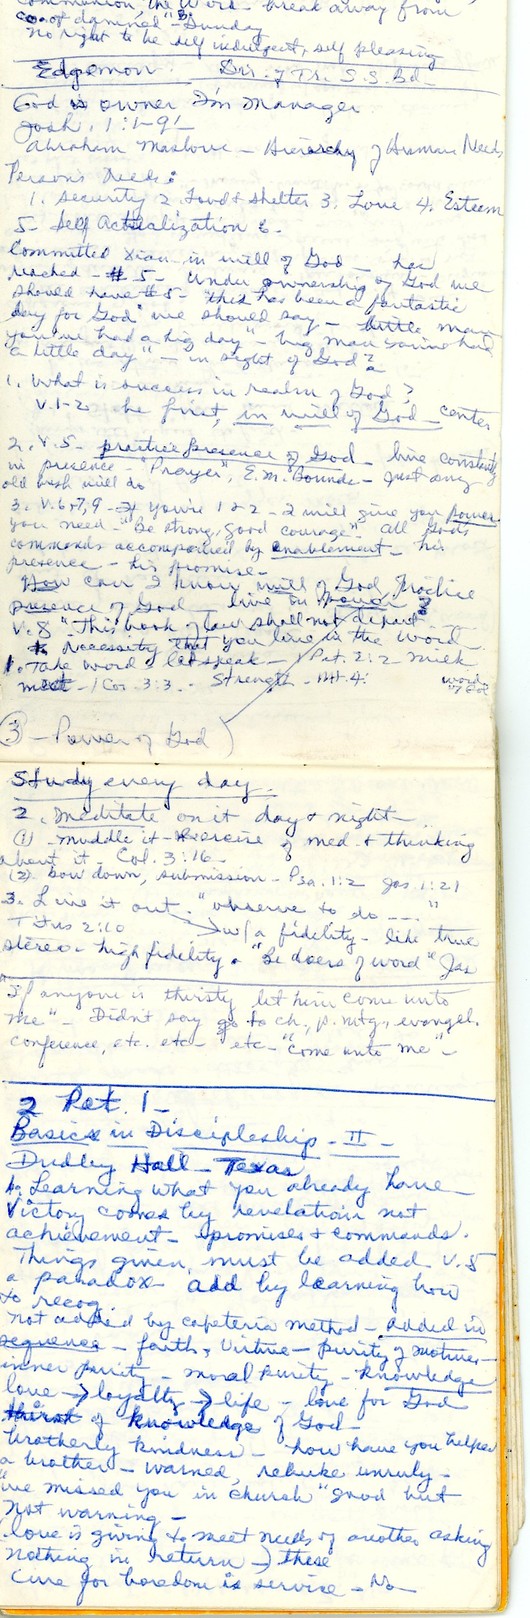 communion, the Word - break away from
"
No right to be self indulgent, self pleasing
Edgemon. Dir. of Tr. S.S. Bd.
God is owner I'm Manager
Josh. 1:1-9
Abraham Maslow - Hierarchy of Human Needs
Person's Needs:
1. Security 2. Food & shelter 3. Love 4. Esteem
5 - Self Actualization 6.
Committed Xian in will of God - has
reached - #5 - Under ownership of God we
should have #5 - this has been a fantastic
day for God" we should say - little man
you've had a big day" - big man you've had
a little day" - in sight of God?
1. What is success in realm of God?
V.1-2 be first, in will of God - center
2. V.5 - practice presence of God - live constantly
in presence - "Prayer", E.M. Bounds - Just any
old bush will do
3. V.6,7,9 - If you're 1 & 2 - I will give you power
you need - "Be strong, good courage" - All God's
commands accompanied by enablement - his
presence - his promise -
How can I know will of God, Practice
presence of God - live in power?
V.8 "This book of law shall not depart
Necessity that you live in the word
1. Take word & let speak - 1 Pet. 2:2 milk
meat - 1 Cor. 3:3 - Strength - Mt. 4: word
3 - Power of God
Study every day.
2. Meditate on it day & night -
(1) Muddle it - exercise of med. & thinking
about it - Col. 3:16 -
(2) bow down, submission - Psa. 1:2 Jas. 1:21
3. Live it out. "observe to do ---"
Titus 2:10 w/a fidelity - like true
stereo - high fidelity. "Be doers of word" Jas
"If anyone is thirsty let him come unto
me" - Didn't say go to ch, p. mtg., evangel.
conference, etc. etc - etc - "Come unto me" -
2 Pet. 1 -
Basics in Discipleship - II -
Dudley Hall - Texas
Learning what you already have -
Victory comes by revelation not
achievement - promises & commands.
Things given must be added V.5
a paradox - add by learning how
to recog.
Not added by cafeteria method - added in
sequence - faith, virtue - purity of motives -
inner purity - moral purity - knowledge
love → loyalty → life - love for God
thirst of knowledge of God -
brotherly kindness - how have you helped
a brother - warned, rebuke unruly -
"we missed you in church" good but
not warning -
love is giving to meet needs of another asking
nothing in return → these
Cure for boredom is service - No -